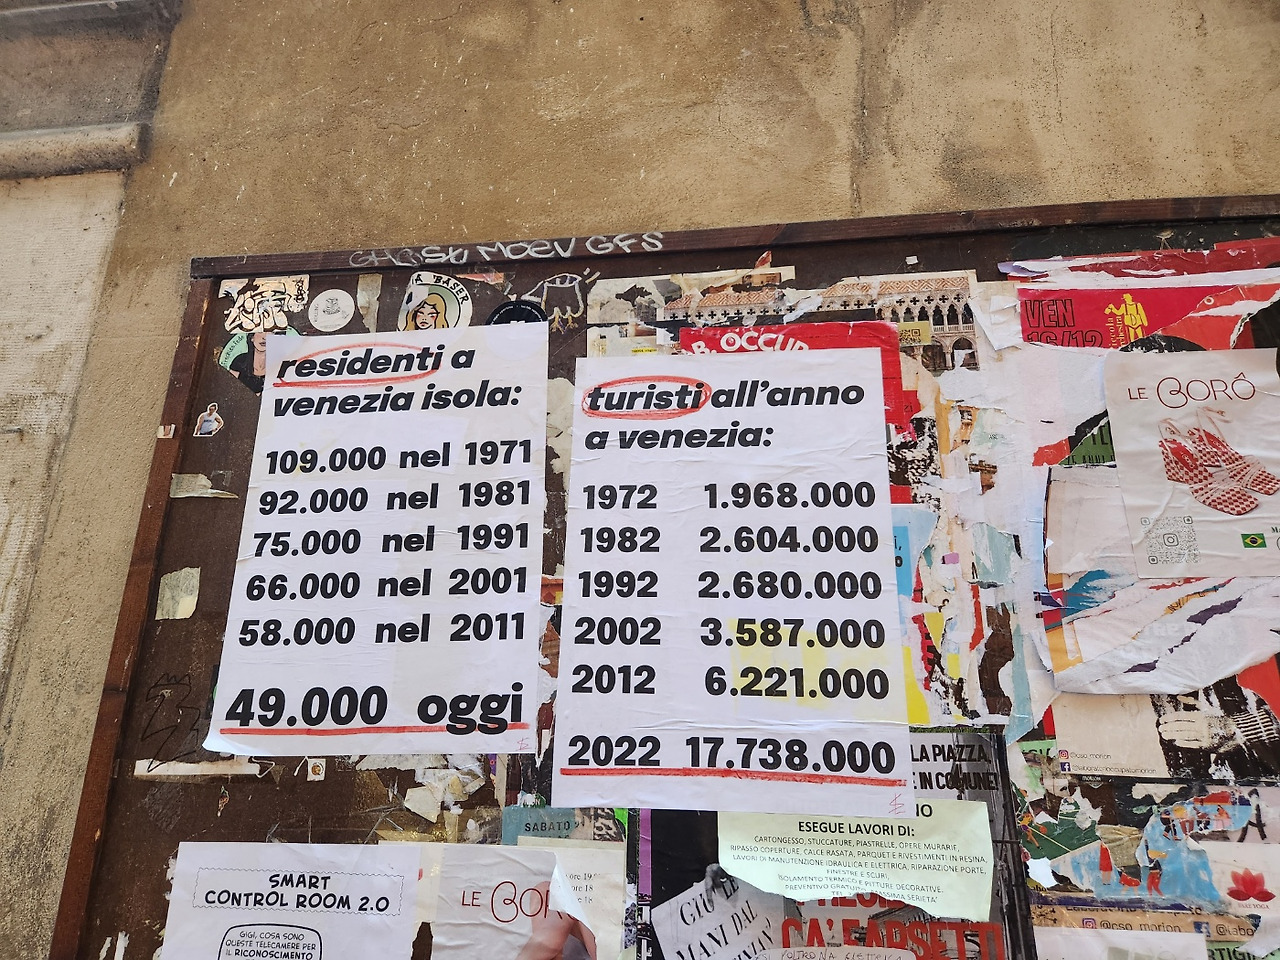 MOEV GFS
BASER
residenti a
venezia isola:
109.000 nel 1971
92.000 nel 1981
75.000 nel 1991
66.000 nel 2001
58.000 nel 2011
49.000 oggi
turisti all'anno
a venezia:
1972 1.968.000
1982 2.604.000
1992 2.680.000
2002 3.587.000
2012 6.221.000
2022 17.738.000
VEN
16/12
LE BORÔ
LA PIAZZA,
E IN COMUNE!
NO
ESEGUE LAVORI DI:
CARTONGESSO, STUCCATURE, PIASTRELLE, OPERE MURARIE,
RIPASSO COPERTURE, CALCE RASATA, PARQUET E RIVESTIMENTI IN RESINA,
LAVORI DI MANUTENZIONE IDRAULICA E ELETTRICA, RIPARAZIONE PORTE,
FINESTRE E SCURI,
ISOLAMENTO TERMICO E PITTURE DECORATIVE.
PREVENTIVO GRATUITO
SERIETA'
SABATO
SMART
CONTROL ROOM 2.0
GIGI, COSA SONO
QUESTE TELECAMERE PER
IL RICONOSCIMENTO
LE BOR
GIÙ LE
MANI DAL
CA' FARSETTI
@cso_morion
@cso_morion